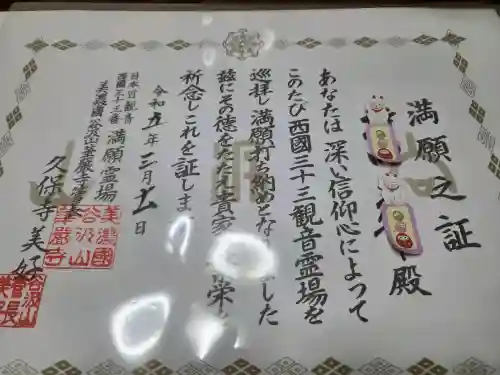 満願之証
殿
あなたは深い信仰心によって
このたび西國三十三観音霊場を
巡拝し満願打ち納めとな した
茲にその徳をたたえ貴家 栄
祈念しこれを証しま
令和五年三月 日
日本百観音
西國三十三番 満願霊場
美濃國 谷汲山華厳寺
久保寺 美好
美濃國
谷汲山
華厳寺